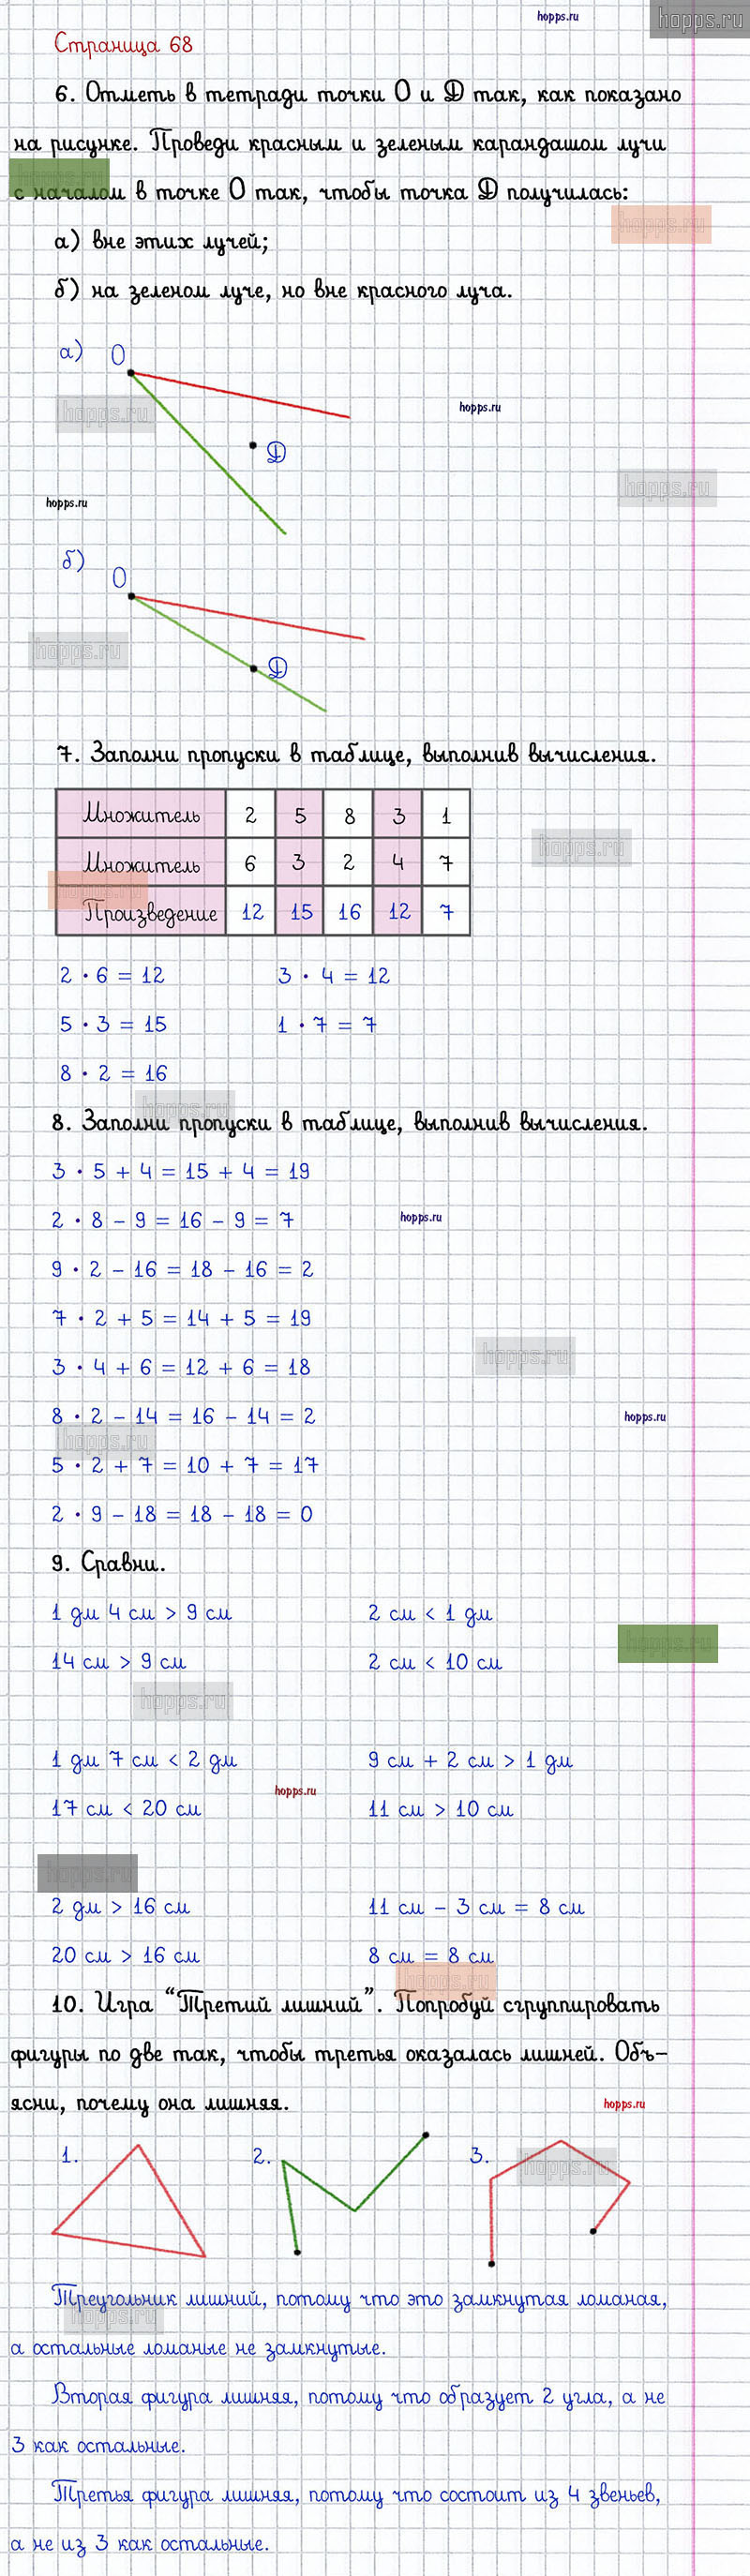 hopps.ru
hopps.ru
Страница 68
6. Отметь в тетради точки О и D так, как показано
на рисунке. Проведи красным и зеленым карандашом лучи
с началом в точке О так, чтобы точка D получилась:
hopps.ru
а) вне этих лучей;
б) на зеленом луче, но вне красного луча.
а) О
hopps.ru
hopps.ru
D
hopps.ru
hopps.ru
б) О
hopps.ru
D
7. Заполни пропуски в таблице, выполнив вычисления.
Множитель 2 5 8 3 1
hopps.ru
Множитель 6 3 2 4 7
Произведение 12 15 16 12 7
2 · 6 = 12 3 · 4 = 12
5 · 3 = 15 1 · 7 = 7
8 · 2 = 16
hopps.ru
8. Заполни пропуски в таблице, выполнив вычисления.
3 · 5 + 4 = 15 + 4 = 19
2 · 8 - 9 = 16 - 9 = 7
hopps.ru
9 · 2 - 16 = 18 - 16 = 2
7 · 2 + 5 = 14 + 5 = 19
hopps.ru
3 · 4 + 6 = 12 + 6 = 18
8 · 2 - 14 = 16 - 14 = 2
hopps.ru
hopps.ru
5 · 2 + 7 = 10 + 7 = 17
2 · 9 - 18 = 18 - 18 = 0
9. Сравни.
1 дм 4 см > 9 см 2 см < 1 дм
hopps.ru
14 см > 9 см 2 см < 10 см
hopps.ru
1 дм 7 см < 2 дм 9 см + 2 см > 1 дм
hopps.ru
17 см < 20 см 11 см > 10 см
hopps.ru
2 дм > 16 см 11 см - 3 см = 8 см
20 см > 16 см 8 см = 8 см
hopps.ru
10. Игра “Третий лишний”. Попробуй сгруппировать
фигуры по две так, чтобы третья оказалась лишней. Объ-
ясни, почему она лишняя.
hopps.ru
1. 2. 3.
hopps.ru
Треугольник лишний, потому что это замкнутая ломаная,
hopps.ru
а остальные ломаные не замкнутые.
Вторая фигура лишняя, потому что образует 2 угла, а не
3 как остальные.
Третья фигура лишняя, потому что состоит из 4 звеньев,
а не из 3 как остальные.